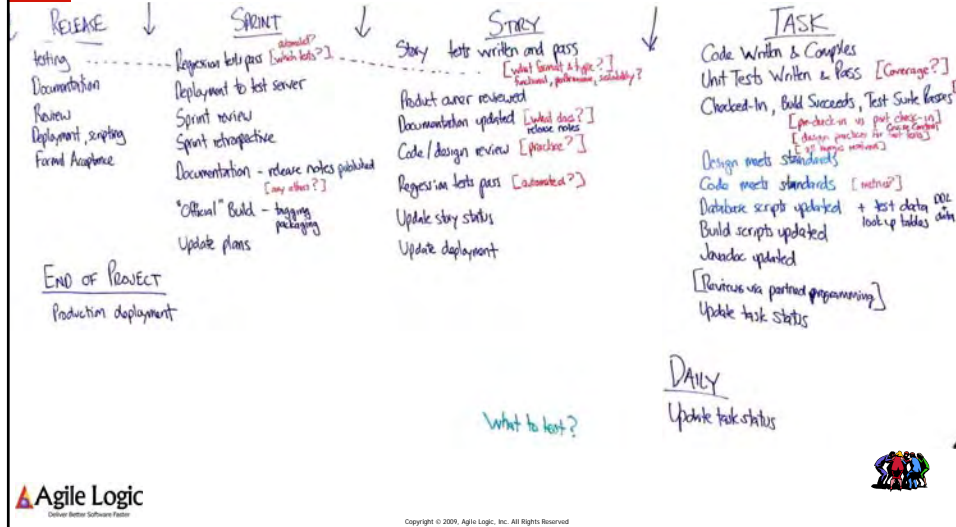 RELEASE
testing
Documentation
Review
Deployment, scripting
Formal Acceptance
END OF PROJECT
Production deployment
SPRINT
automated?
Regression tests pass [which tests?]
Deployment to test server
Sprint review
Sprint retrospective
Documentation - release notes published
[any others?]
"Official" Build - tagging
packaging
Update plans
STORY
Story tests written and pass
[what format & type?]
functional, performance, scalability?
Product owner reviewed
Documentation updated [what docs?]
release notes
Code/design review [practice?]
Regression tests pass [automated?]
Update story status
Update deployment
What to test?
TASK
Code Written & Compiles
Unit Tests Written & Pass [Coverage?]
Checked-In, Build Succeeds, Test Suite Passes
[pre-check-in vs post check-in]
Cruise Control
[design practices for fast tests]
[vs logic removed]
Design meets standards
Code meets standards [metrics?]
Database scripts updated + test data DDL
look up tables + data
Build scripts updated
Javadoc updated
[Reviews via partnered programming]
Update task status
DAILY
Update task status
Agile Logic
Deliver Better Software Faster
Copyright © 2009, Agile Logic, Inc. All Rights Reserved